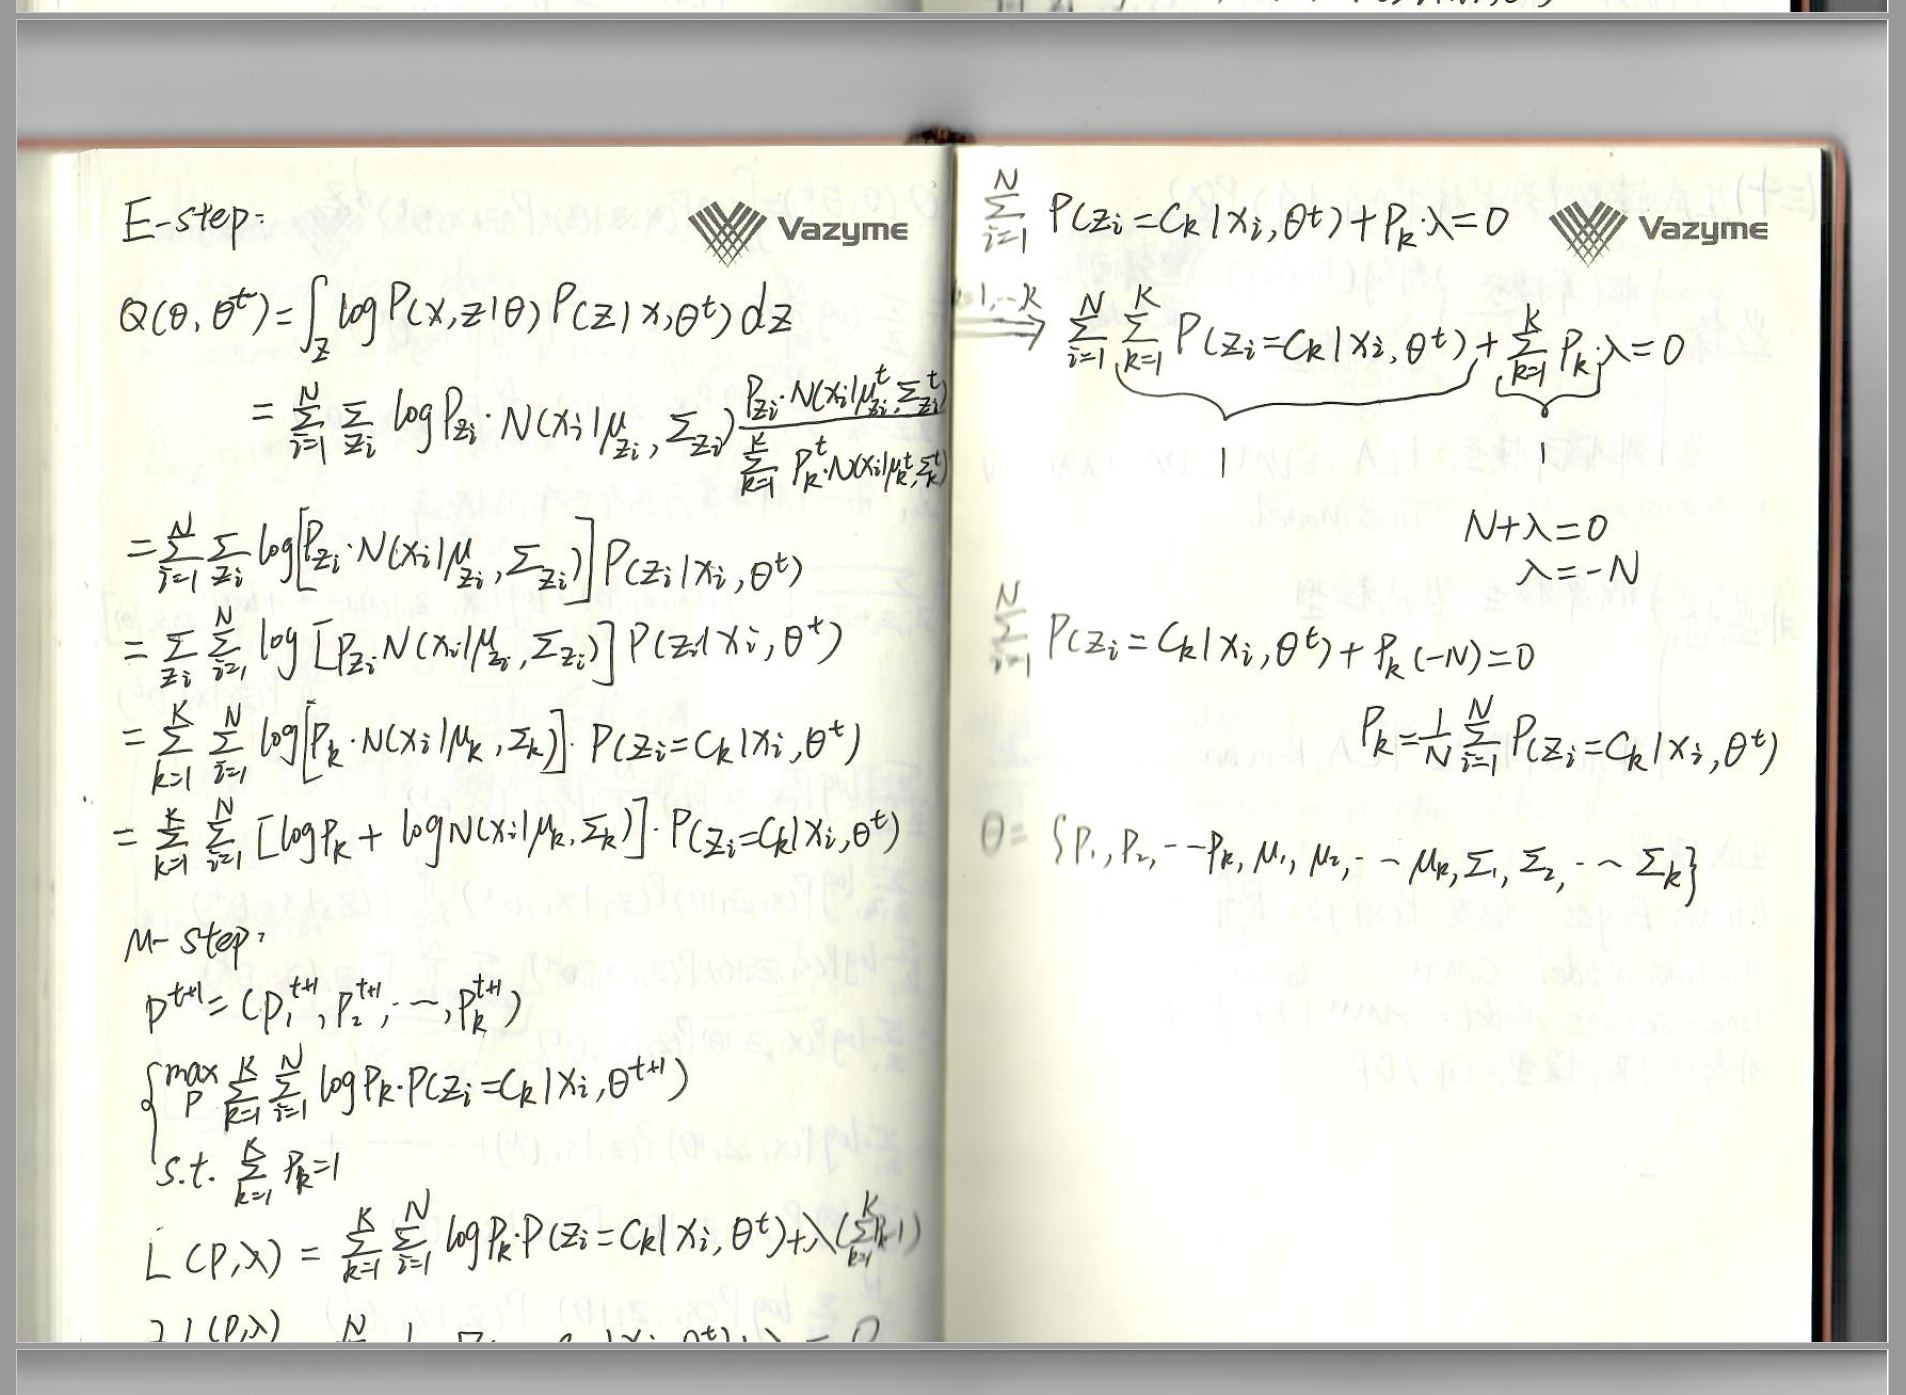 E-step:
Vazyme
Q(θ, θ^t) = ∫_Z log P(x,z|θ) P(z|x,θ^t) dz
= Σ_{i=1}^N Σ_{z_i} log P_{z_i} · N(x_i|μ_{z_i}, Σ_{z_i}) (P_{z_i}^t · N(x_i|μ_{z_i}^t, Σ_{z_i}^t)) / (Σ_{k=1}^K P_k^t · N(x_i|μ_k^t, Σ_k^t))
= Σ_{i=1}^N Σ_{z_i} log [P_{z_i} · N(x_i|μ_{z_i}, Σ_{z_i})] P(z_i|x_i, θ^t)
= Σ_{z_i} Σ_{i=1}^N log [P_{z_i} N(x_i|μ_{z_i}, Σ_{z_i})] P(z_i|x_i, θ^t)
= Σ_{k=1}^K Σ_{i=1}^N log [P_k · N(x_i|μ_k, Σ_k)] · P(z_i=C_k|x_i, θ^t)
= Σ_{k=1}^K Σ_{i=1}^N [log P_k + log N(x_i|μ_k, Σ_k)] · P(z_i=C_k|x_i, θ^t)
M-step:
P^{t+1} = (P_1^{t+1}, P_2^{t+1}, ..., P_k^{t+1})
{ max_P Σ_{k=1}^K Σ_{i=1}^N log P_k · P(z_i=C_k|x_i, θ^{t+1})
s.t. Σ_{k=1}^K P_k=1
L(P,λ) = Σ_{k=1}^K Σ_{i=1}^N log P_k · P(z_i=C_k|x_i, θ^t) + λ(Σ_{k=1}^K P_k-1)
Σ_{i=1}^N P(z_i=C_k|x_i, θ^t) + P_k·λ=0
Vazyme
k=1,..K ⟹ Σ_{i=1}^N Σ_{k=1}^K P(z_i=C_k|x_i, θ^t) + Σ_{k=1}^K P_k·λ=0
1 1
N+λ=0
λ=-N
Σ_{i=1}^N P(z_i=C_k|x_i, θ^t) + P_k(-N)=0
P_k = 1/N Σ_{i=1}^N P(z_i=C_k|x_i, θ^t)
θ = {P_1, P_2, ... P_k, μ_1, μ_2, ... μ_k, Σ_1, Σ_2, ... Σ_k}